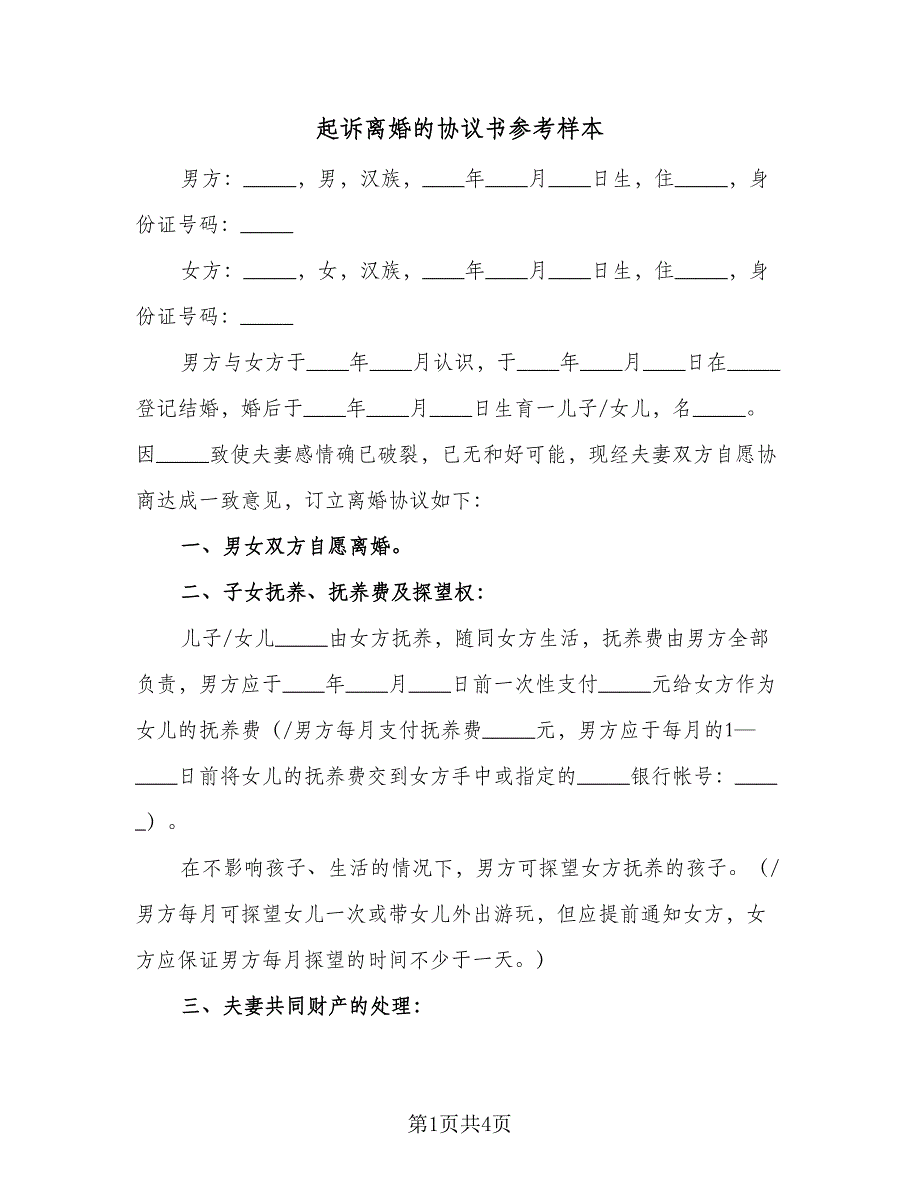 起诉离婚的协议书参考样本
男方：_____，男，汉族，____年____月____日生，住_____，身
份证号码：_____
女方：_____，女，汉族，____年____月____日生，住_____，身
份证号码：_____
男方与女方于____年____月认识，于____年____月____日在_____
登记结婚，婚后于____年____月____日生育一儿子/女儿，名_____。
因_____致使夫妻感情确已破裂，已无和好可能，现经夫妻双方自愿协
商达成一致意见，订立离婚协议如下：
一、男女双方自愿离婚。
二、子女抚养、抚养费及探望权：
儿子/女儿_____由女方抚养，随同女方生活，抚养费由男方全部
负责，男方应于____年____月____日前一次性支付_____元给女方作为
女儿的抚养费（/男方每月支付抚养费_____元，男方应于每月的1—
____日前将女儿的抚养费交到女方手中或指定的_____银行帐号：____
_）。
在不影响孩子、生活的情况下，男方可探望女方抚养的孩子。（/
男方每月可探望女儿一次或带女儿外出游玩，但应提前通知女方，女
方应保证男方每月探望的时间不少于一天。）
三、夫妻共同财产的处理：
第1页共4页